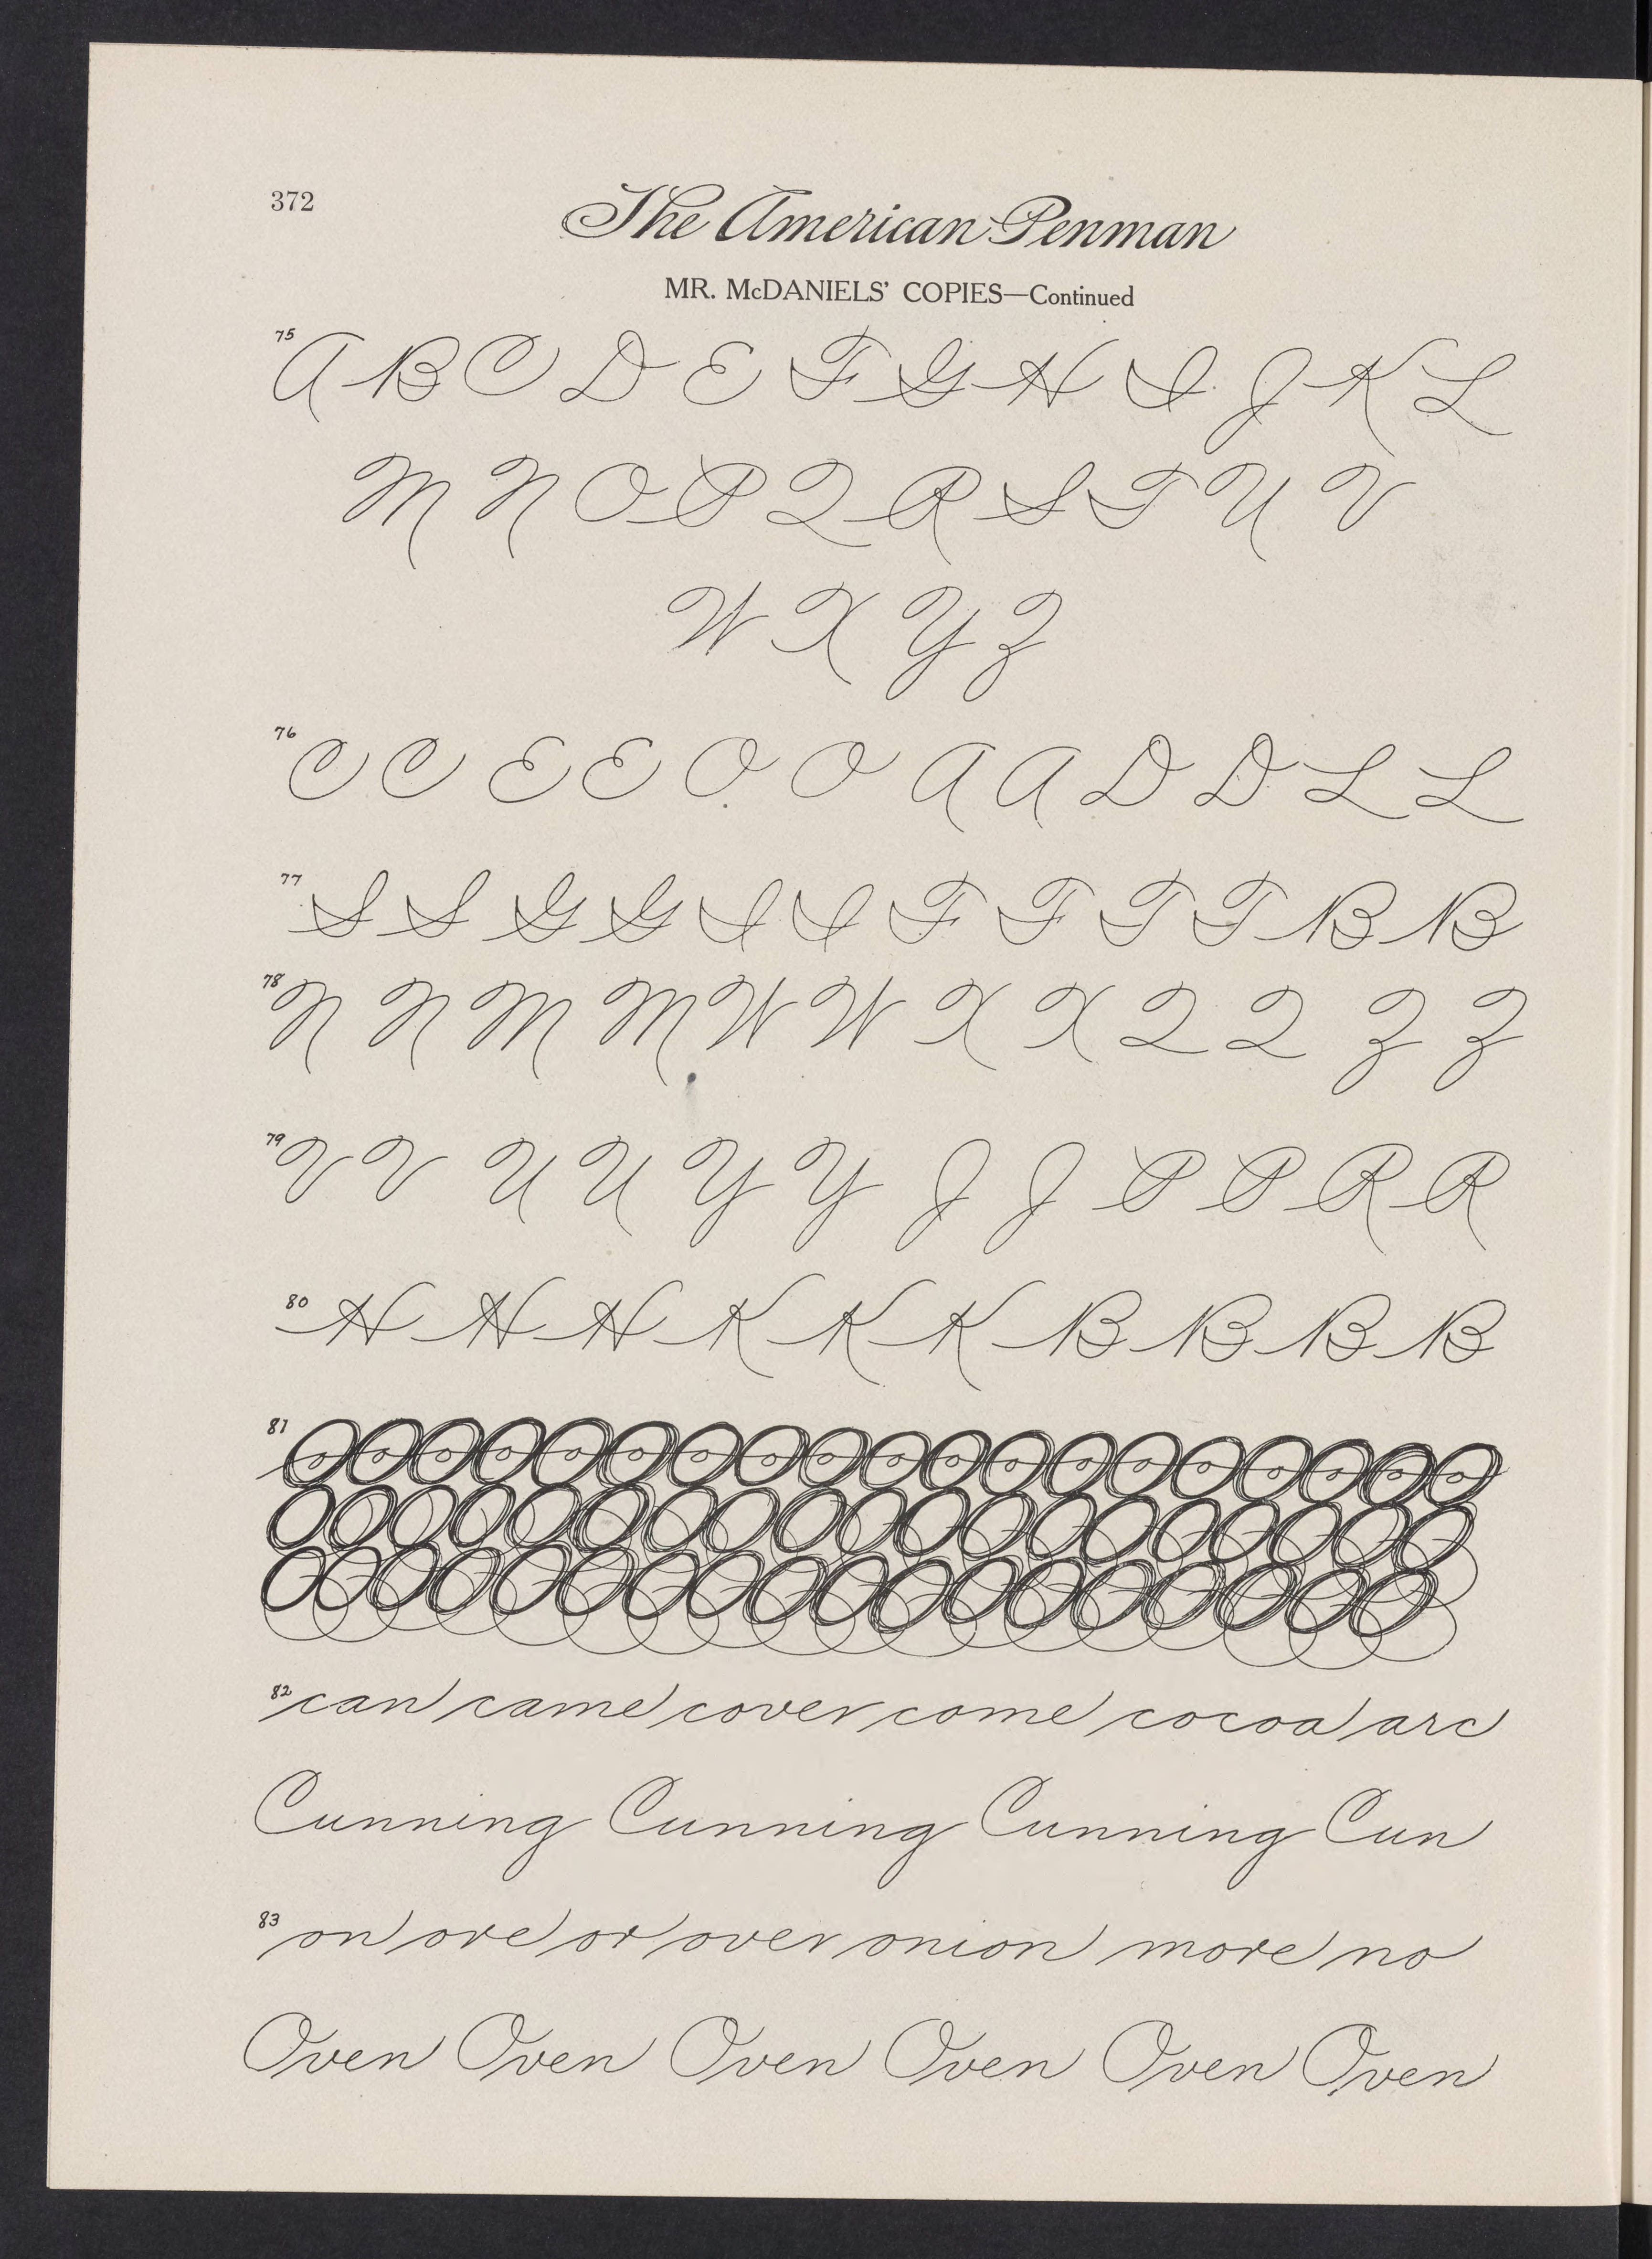 372
The American Penman
MR. McDANIELS' COPIES—Continued
75 A B C D E F G H I J K L
M N O P Q R S T U V
W X Y Z
76 C C E E O O A A D D L L
77 S S G G I I F F T T B B
78 N N M M W W X X Q Q Z Z
79 V V U U Y Y J J P P R R
80 H H H K K K B B B B
81
82 can came cover come cocoa arc
Cunning Cunning Cunning Cun
83 on ore or over onion more no
Oven Oven Oven Oven Oven Oven